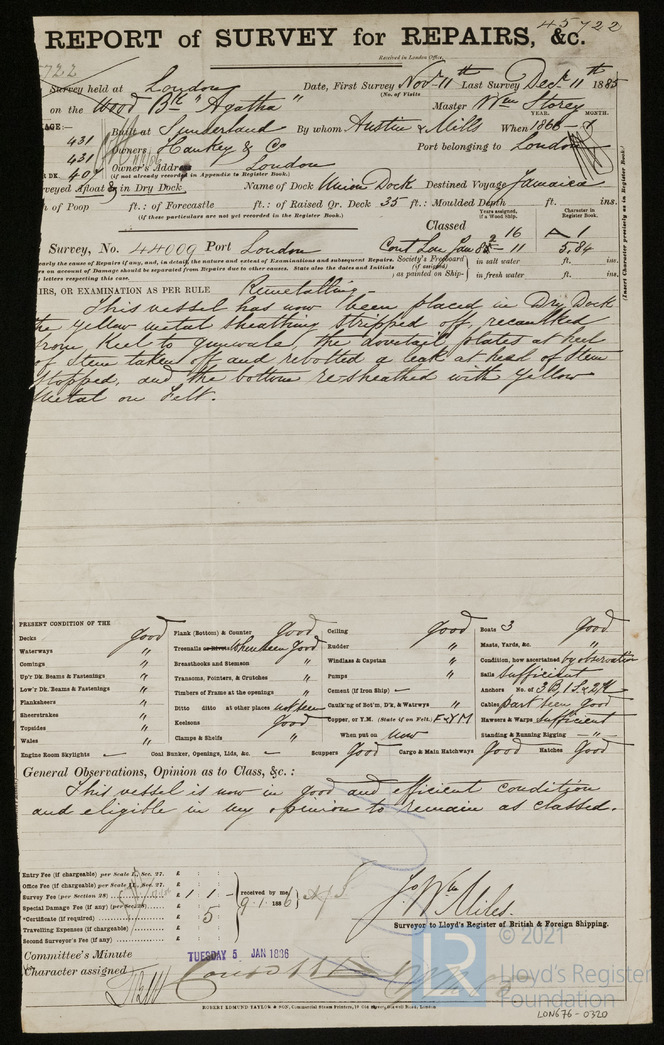 45722
REPORT of SURVEY for REPAIRS, &c.
Received in London Office,
722
Survey held at London Date, First Survey Novr 11th Last Survey Decr 11th 1885
(No. of Visits
on the Wood Bk "Agatha" Master Wm Storey
AGE:— YEAR. MONTH.
431 Built at Sunderland By whom Austin & Mills When 1866 - 7
431 Owners Hankey & Co Port belonging to London
DK. 407 Owner's Address London
(if not already recorded in Appendix to Register Book.)
rveyed Afloat & in Dry Dock Name of Dock Union Dock Destined Voyage Jamaica
h of Poop ft.: of Forecastle ft.: of Raised Qr. Deck 35 ft.: Moulded Depth ft. ins.
(if these particulars are not yet recorded in the Register Book.)
Years assigned, if a Wood Ship. Character in Register Book.
Classed 16 A 1
Survey, No. 44009 Port London Cont Lon Jan 85 - 11 5,84
early the cause of Repairs if any, and, in detail, the nature and extent of Examinations and subsequent Repairs.
rs on account of Damage should be separated from Repairs due to other causes. State also the dates and Initials
y letters respecting this case.
Society's Freeboard (if assigned) as painted on Ship— in salt water ft. ins.
in fresh water ft. ins.
(Insert Character precisely as in Register Book.)
IRS, OR EXAMINATION AS PER RULE Remetalling
This vessel has now been placed in Dry Dock
the yellow metal sheathing stripped off, recaulked
from Keel to gunwale, the dovetail plates at heel
of Stem taken off and rebolted a leak at head of Stem
stopped, and the bottom resheathed with yellow
metal on Felt.
PRESENT CONDITION OF THE
Decks good
Waterways "
Comings "
Up'r Dk. Beams & Fastenings "
Low'r Dk. Beams & Fastenings "
Planksheers "
Sheerstrakes "
Topsides "
Wales "
Engine Room Skylights —
Plank (Bottom) & Counter good
Treenails or Rivets when seen good
Breasthooks and Stemson "
Transoms, Pointers, & Crutches "
Timbers of Frame at the openings "
Ditto ditto at other places not seen
Keelsons good
Clamps & Shelfs "
Coal Bunker, Openings, Lids, &c. —
Ceiling good
Rudder "
Windlass & Capstan "
Pumps "
Cement (if Iron Ship) —
Caulk'ng of Bot'm, D'k, & Watrw'ys "
Copper, or Y.M. (State if on Felt.) F & YM
When put on now
Scuppers good Cargo & Main Hatchways good Hatches good
Boats 3 good
Masts, Yards, &c. "
Condition, how ascertained by observation
Sails sufficient
Anchors No. of 3B, 1S & 2K
Cables part seen good
Hawsers & Warps sufficient
Standing & Running Rigging — " —
General Observations, Opinion as to Class, &c. :
This vessel is now in good and efficient condition
and eligible in my opinion to remain as classed.
Entry Fee (if chargeable) per Scale I., Sec. 27. £ : :
Office Fee (if chargeable) per Scale II., Sec. 27. £ : :
Survey Fee (per Section 28) £ 1 1 -
Special Damage Fee (if any) (per Sec. 28) £ : :
*Certificate (if required) £ 5
Travelling Expenses (if chargeable) £ : :
Second Surveyor's Fee (if any) £ : :
received by me,
9.1.1886
Jo Wm Miles.
Surveyor to Lloyd's Register of British & Foreign Shipping.
Committee's Minute TUESDAY 5 JAN 1886
Character assigned
ROBERT EDMUND TAYLOR & SON, Commercial Steam Printers, 19 Old Street, Goswell Road, London
LR © 2021
Lloyd's Register
Foundation
LON676-0320